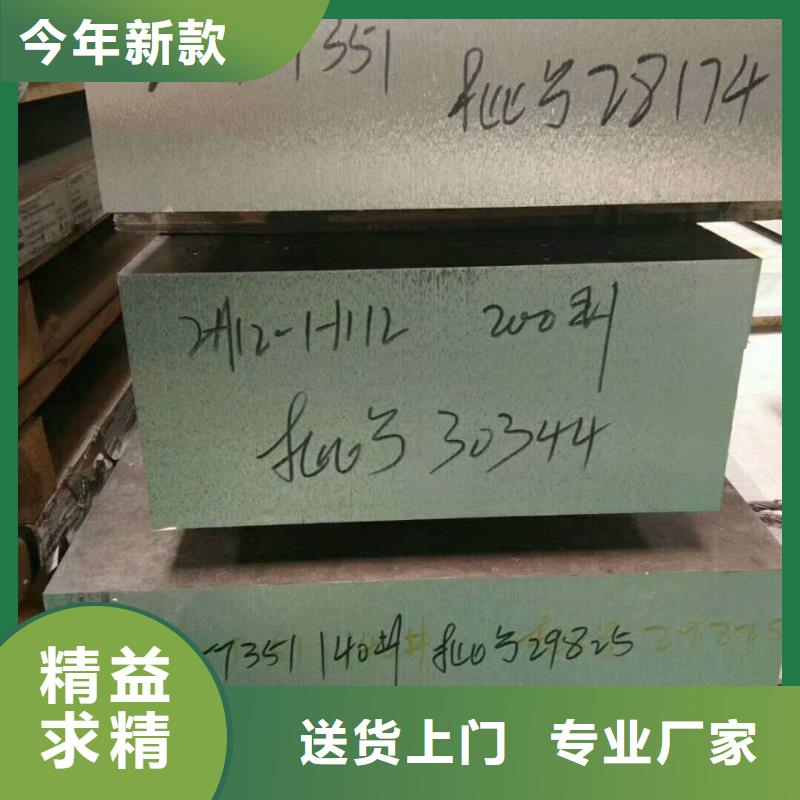 今年新款
351
批号28174
2A12-H112 200料
批号30344
-T351 140料 批号29825
29825
精益
求精
送货上门 专业厂家